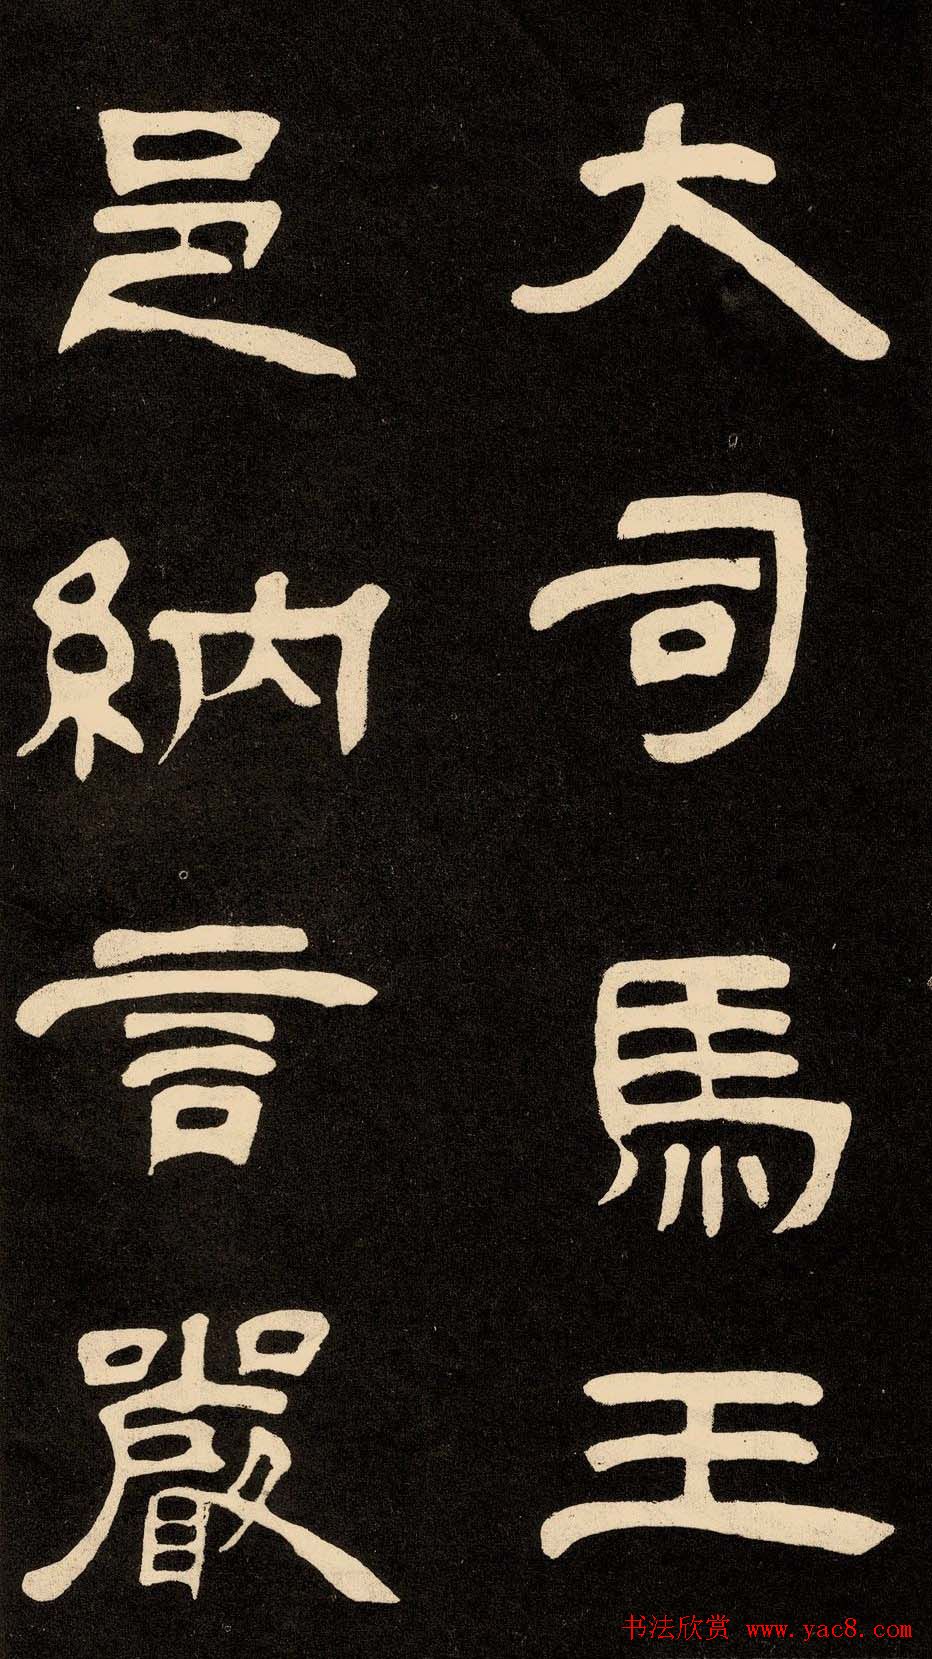 大司馬王
邑納言嚴
书法欣赏 www.yac8.com